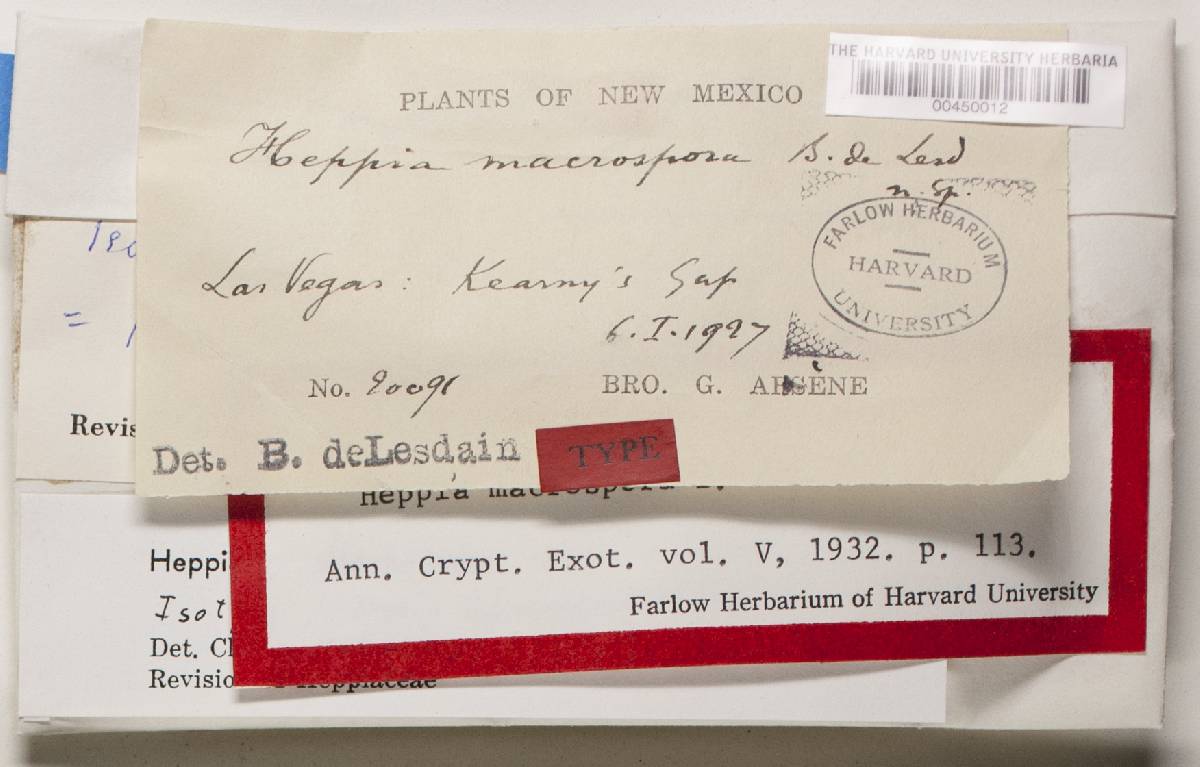 THE HARVARD UNIVERSITY HERBARIA
00450012
PLANTS OF NEW MEXICO
Heppia macrospora B. de Lesd
n. sp.
FARLOW HERBARIUM
HARVARD
UNIVERSITY
Las Vegas: Kearny's Gap
6.I.1927
No. 20091
BRO. G. ARSÈNE
Det. B. deLesdain
TYPE
=
Revis
Heppia macrospora
Ann. Crypt. Exot. vol. V, 1932. p. 113.
Farlow Herbarium of Harvard University
Heppi
Isot
Det. Cl
Revisio Heppiaceae